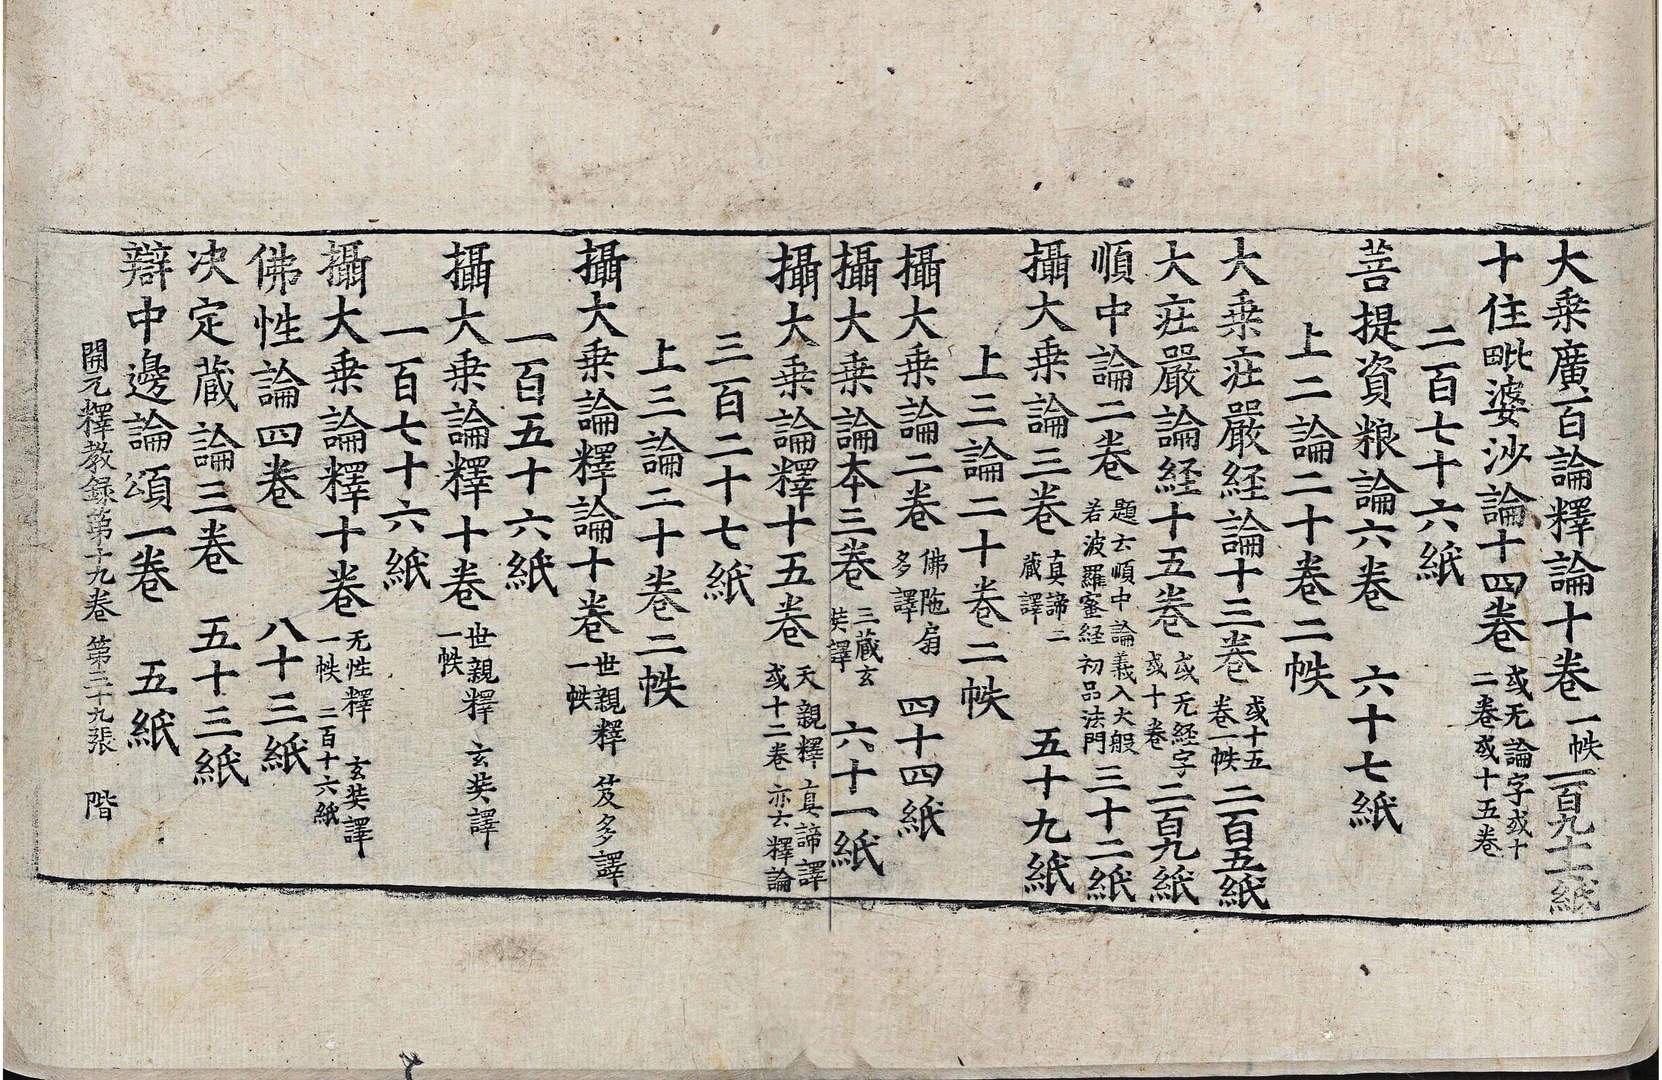 大乗廣百論釋論十卷一帙一百九十二紙
十住毗婆沙論十四卷或无論字或十二卷或十五卷
二百七十六紙
菩提資粮論六卷 六十七紙
上二論二十卷二帙
大乗莊嚴経論十三卷或十五卷一帙二百五紙
大莊嚴論経十五卷或无経字或十卷二百九紙
順中論二卷題云順中論義入大般若波羅蜜経初品法門三十二紙
攝大乗論三卷真諦三藏譯 五十九紙
上三論二十卷二帙
攝大乗論二卷佛陁扇多譯 四十四紙
攝大乗論本三卷三藏玄奘譯 六十一紙
攝大乗論釋十五卷天親釋真諦譯或十二卷亦云釋論
三百二十七紙
上三論二十卷二帙
攝大乗論釋論十卷世親釋笈多譯一帙
一百五十六紙
攝大乗論釋十卷世親釋玄奘譯一帙
一百七十六紙
攝大乗論釋十卷无性釋玄奘譯一帙二百十六紙
佛性論四卷 八十三紙
决定蔵論三卷 五十三紙
辯中邊論頌一卷 五紙
開元釋教録第十九卷 第三十九張 階